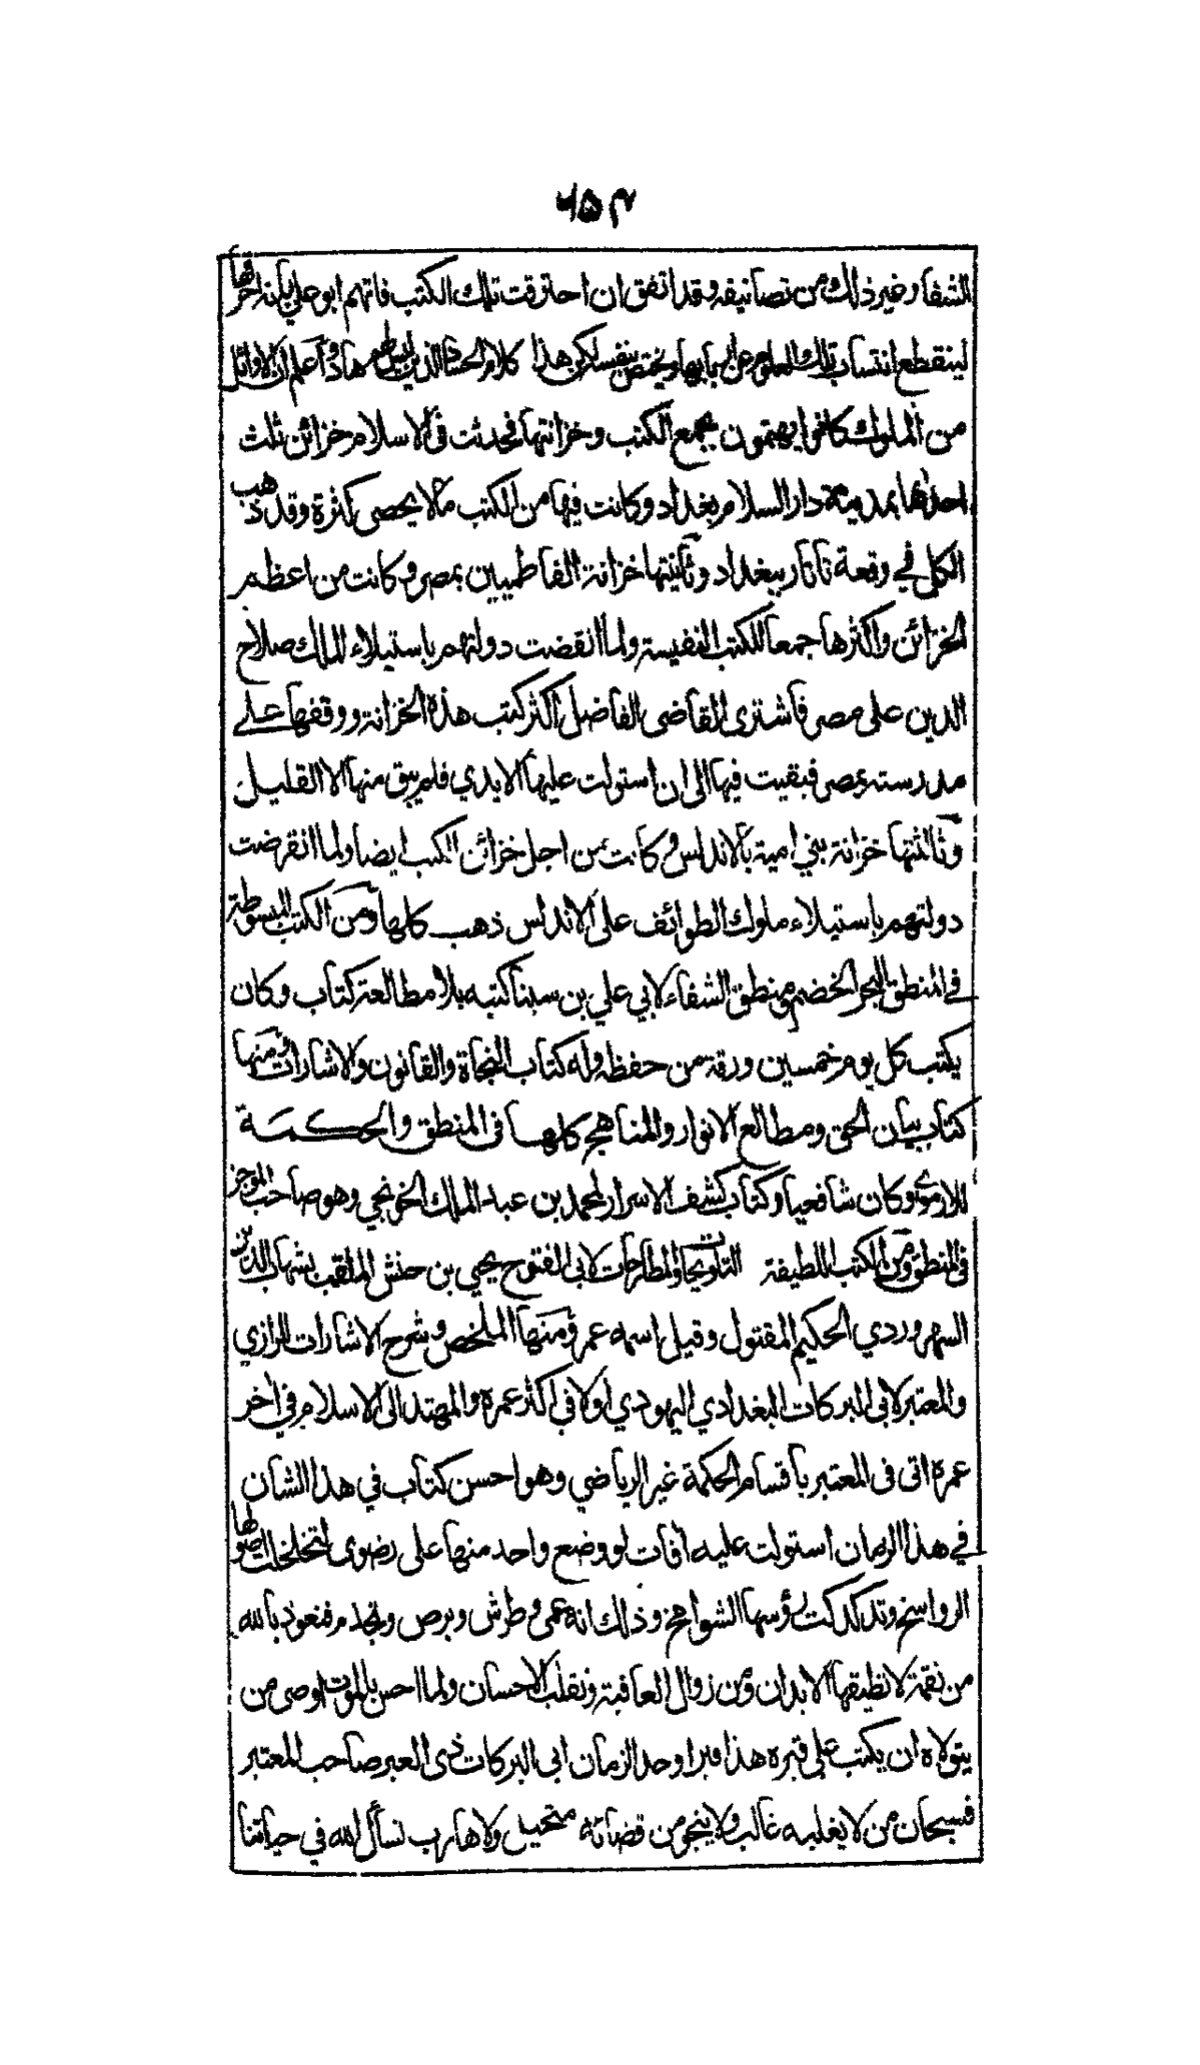 ٦٥٣
الشفاء وغير ذلك من تصانيفه وقد اتفق ان احترقت تلك الكتب فاتهم ابو علي بانه احرقها
لينقطع انتساب تلك العلوم عن اربابها ويختص بنفسه لكن هذا كلام الحساد الذين ليس لهم هاد واعلم ان الاوائل
من الملوك كانوا يهتمون بجمع الكتب وخزانتها فحدثت في الاسلام خزائن ثلث
احداها بمدينة دار السلام بغداد وكانت فيها من الكتب ما لا يحصى كثرة وقد ذهب
الكل في وقعة تاتار ببغداد وثانيتها خزانة الفاطميين بمصر وكانت من اعظم
الخزائن واكثرها جمعا للكتب النفيسة ولما انقضت دولتهم باستيلاء الملك صلاح
الدين على مصر فاشترى القاضي الفاضل اكثر كتب هذه الخزانة ووقفها على
مدرسته بمصر فبقيت فيها الى ان استولت عليها الايدي فلم يبق منها الا القليل
وثالثتها خزانة بني امية بالاندلس وكانت من اجل خزائن الكتب ايضا ولما انقرضت
دولتهم باستيلاء ملوك الطوائف على الاندلس ذهب كلها ومن الكتب المبسوطة
في المنطق البحر الخضم ومنطق الشفاء لابي علي بن سينا كتبه بلا مطالعة كتاب وكان
يكتب كل يوم خمسين ورقة من حفظه وله كتاب النجاة والقانون والاشارات ومنها
كتاب بيان الحق ومطالع الانوار والمناهج كلها في المنطق والحكمة
للارموي وكان شافعيا وكتاب كشف الاسرار لمحمد بن عبد الملك الخونجي وهو صاحب الموجز
في المنطق ومن الكتب اللطيفة التلويحات والمطارحات لابي الفتوح يحيي بن حنش الملقب بشهاب الدين
السهروردي الحكيم المقتول وقيل اسمه عمر ومنها الملخص وشرح الاشارات للرازي
والمعتبر لابي البركات البغدادي اليهودي اولا في اكثر عمره والمهتد الى الاسلام في اخر
عمره اتى في المعتبر باقسام الحكمة غير الرياضي وهو احسن كتاب في هذا الشان
في هذا الزمان استولت عليه آفات لو وضع واحد منها على رضوى لتخلخلت اصولها
الرواسخ وتدكدكت رؤسها الشوامخ وذلك انه عمى وطرش وبرص وتجذم فنعوذ بالله
من نقمة لا تطيقها الابدان ومن زوال العافية وتقلب الاحسان ولما احس بالموت اوصى من
يتولاه ان يكتب على قبره هذا قبر اوحد الزمان ابي البركات ذي العبر صاحب المعتبر
فسبحان من لا يغلبه غالب ولا ينجو من قضائه متحيل ولا هارب نسأل الله في حياتنا